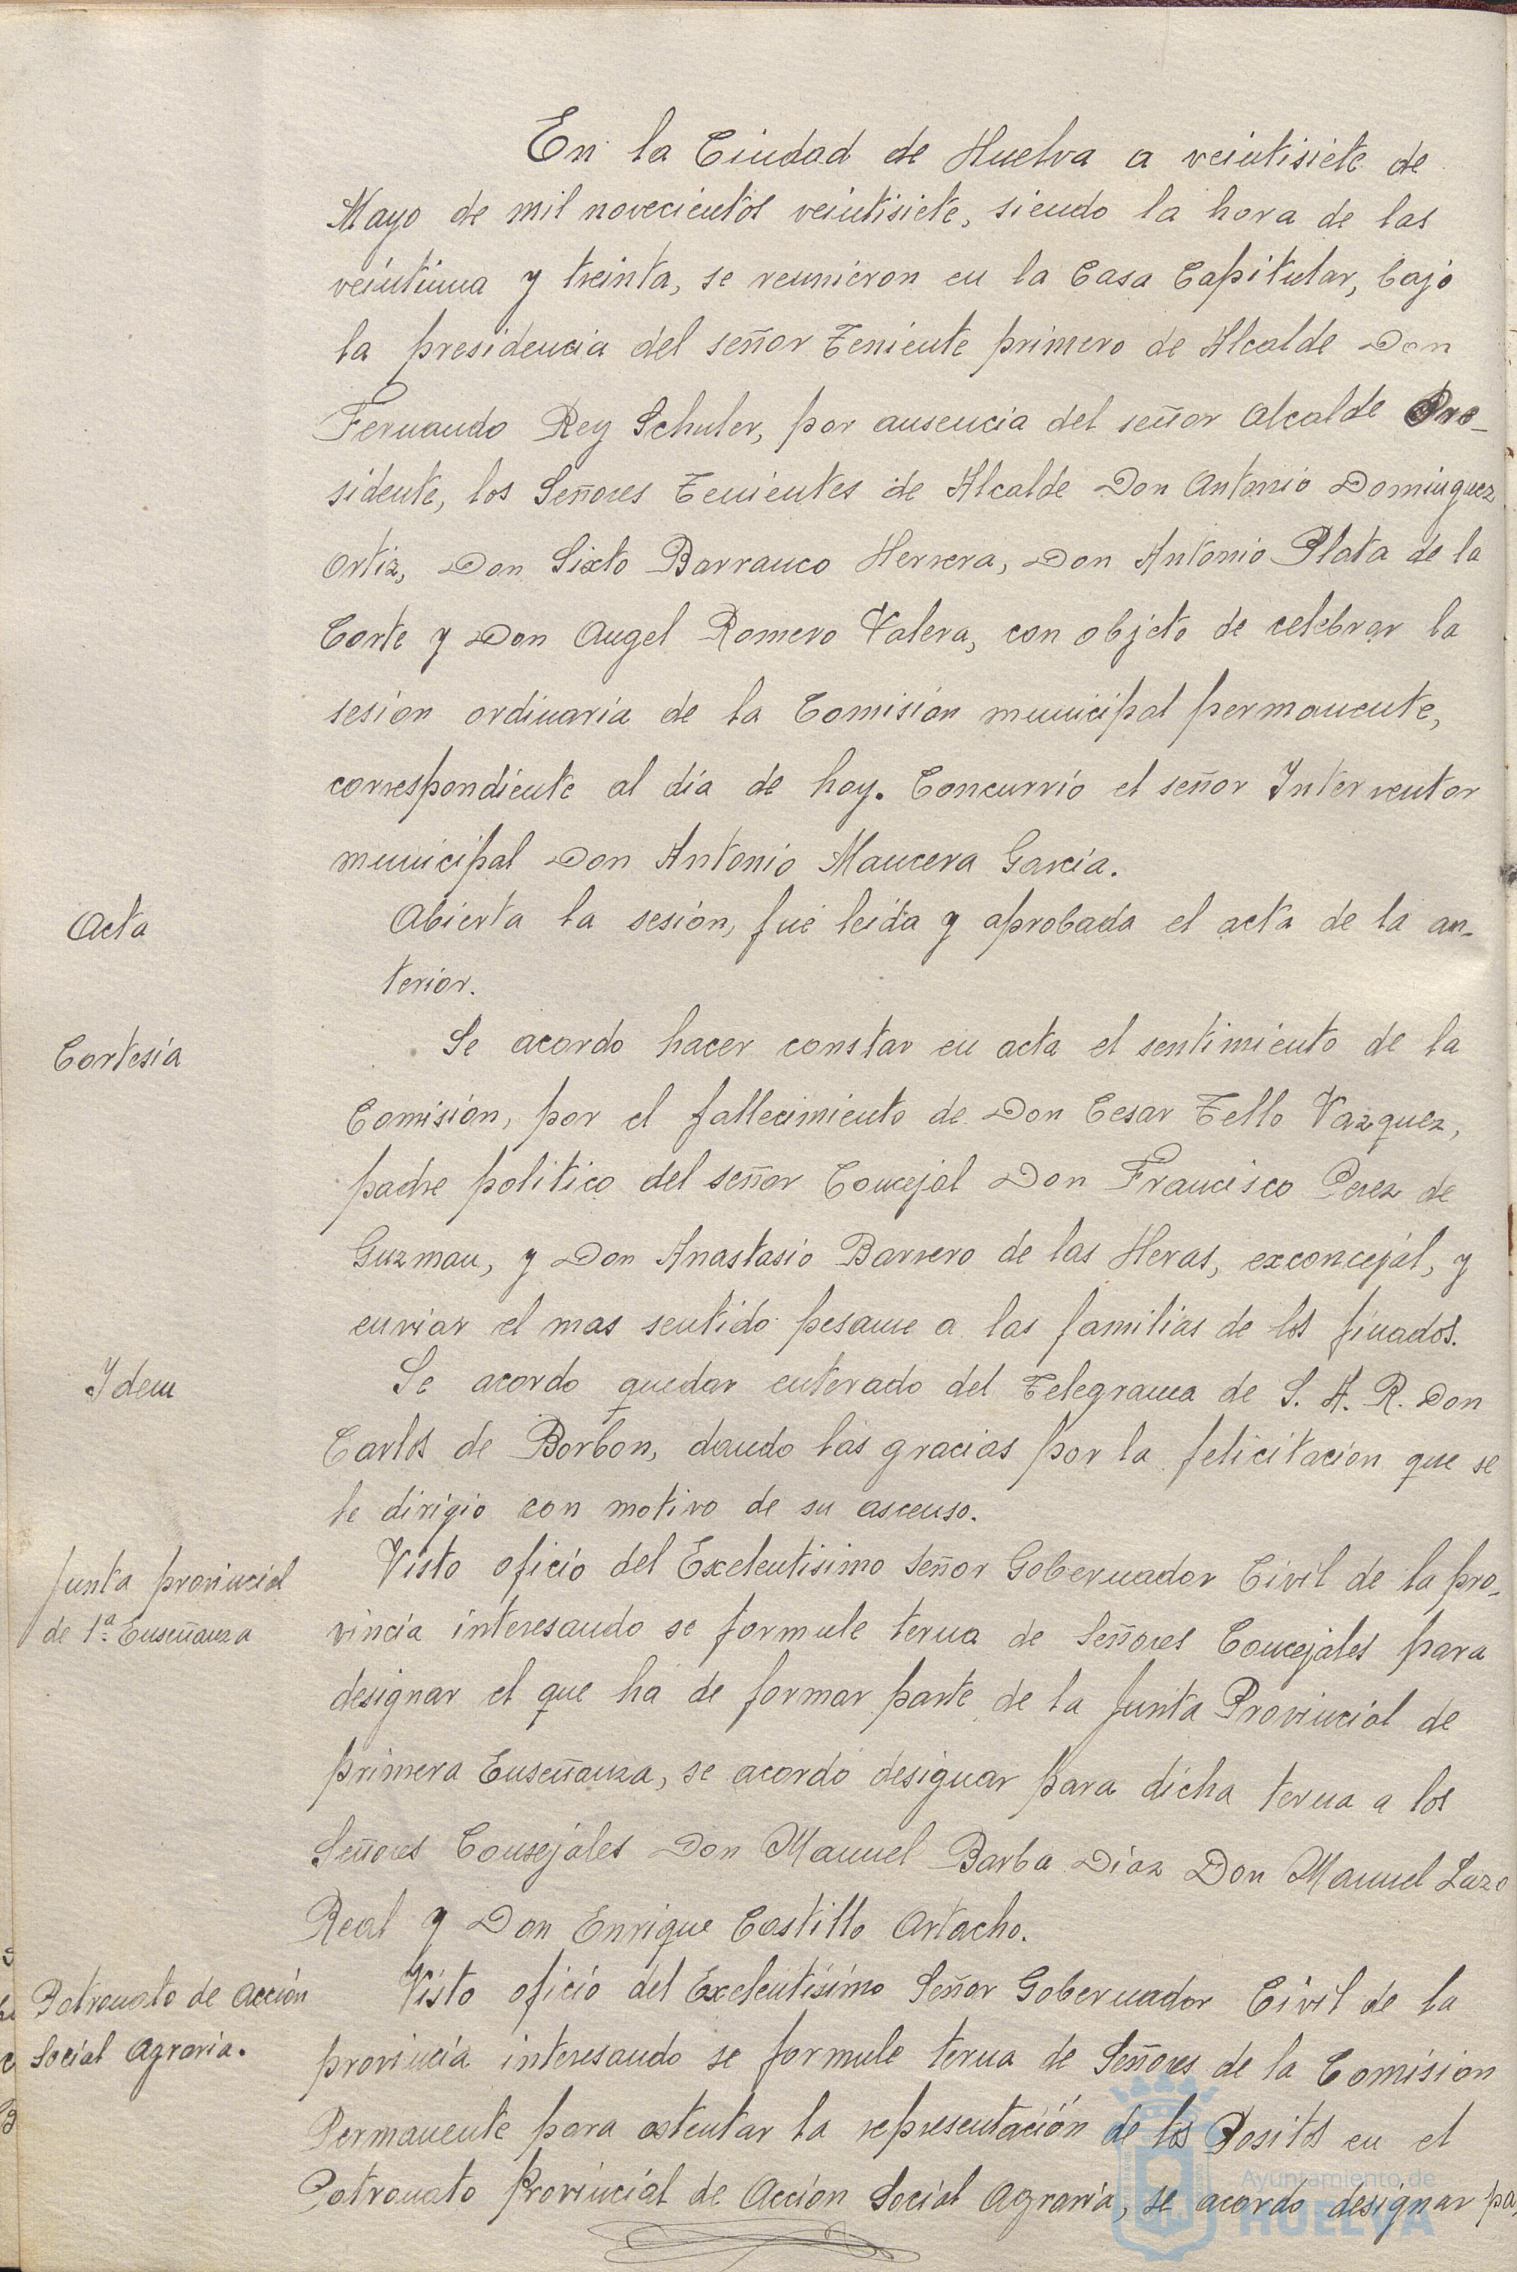 En la Ciudad de Huelva a veintisiete de
Mayo de mil novecientos veintisiete, siendo la hora de las
veintiuna y treinta, se reunieron en la Casa Capitular, bajo
la presidencia del señor Teniente primero de Alcalde Don
Fernando Rey Schuler, por ausencia del señor Alcalde Pre-
sidente, los Señores Tenientes de Alcalde Don Antonio Dominguez
Ortiz, Don Sixto Barranco Herrera, Don Antonio Plata de la
Corte y Don Angel Romero Valera, con objeto de celebrar la
sesion ordinaria de la Comisión municipal permanente,
correspondiente al dia de hoy. Concurrió el señor Interventor
municipal Don Antonio Mancera Garcia.
Acta
Abierta la sesión, fué leida y aprobada el acta de la an-
terior.
Cortesía
Se acordo hacer constar en acta el sentimiento de la
Comisión, por el fallecimiento de Don Cesar Tello Vazquez,
padre politico del señor Concejal Don Francisco Perez de
Guzman, y Don Anastasio Barrero de las Heras, exconcejal, y
enviar el mas sentido pesame a las familias de los finados.
Idem
Se acordo quedar enterado del Telegrama de S. A. R. Don
Carlos de Borbon, dando las gracias por la felicitacion que se
le dirigio con motivo de su ascenso.
Junta provincial
de 1ª Enseñanza
Visto oficio del Excelentisimo Señor Gobernador Civil de la pro-
vincia interesando se formule terna de Señores Concejales para
designar el que ha de formar parte de la Junta Provincial de
primera Enseñanza, se acordó designar para dicha terna a los
Señores Consejales Don Manuel Barba Diaz Don Manuel Lazo
Real y Don Enrique Castillo Artacho.
Patronato de Acción
Social Agraria.
Visto oficio del Excelentísimo Señor Gobernador Civil de la
provincia interesando se formule terna de Señores de la Comision
Permanente para ostentar la representación de los Positos en el
Patronato Provincial de Acción Social Agraria, se acordo designar pa-
Ayuntamiento de
HUELVA